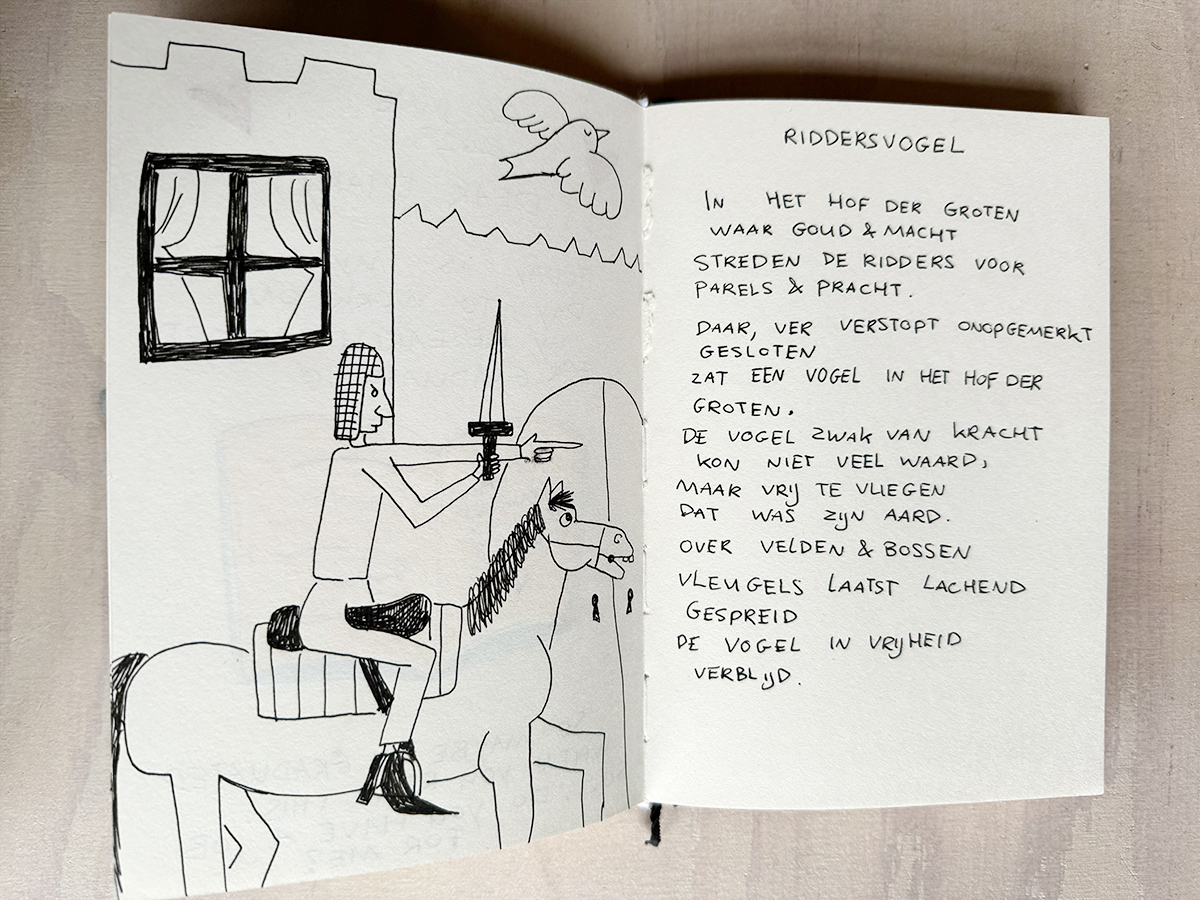 RIDDERSVOGEL
IN HET HOF DER GROTEN
WAAR GOUD & MACHT
STREDEN DE RIDDERS VOOR
PARELS & PRACHT.
DAAR, VER VERSTOPT ONOPGEMERKT
GESLOTEN
ZAT EEN VOGEL IN HET HOF DER
GROTEN.
DE VOGEL ZWAK VAN KRACHT
KON NIET VEEL WAARD,
MAAR VRIJ TE VLIEGEN
DAT WAS ZIJN AARD.
OVER VELDEN & BOSSEN
VLEUGELS LAATST LACHEND
GESPREID
DE VOGEL IN VRIJHEID
VERBLIJD.